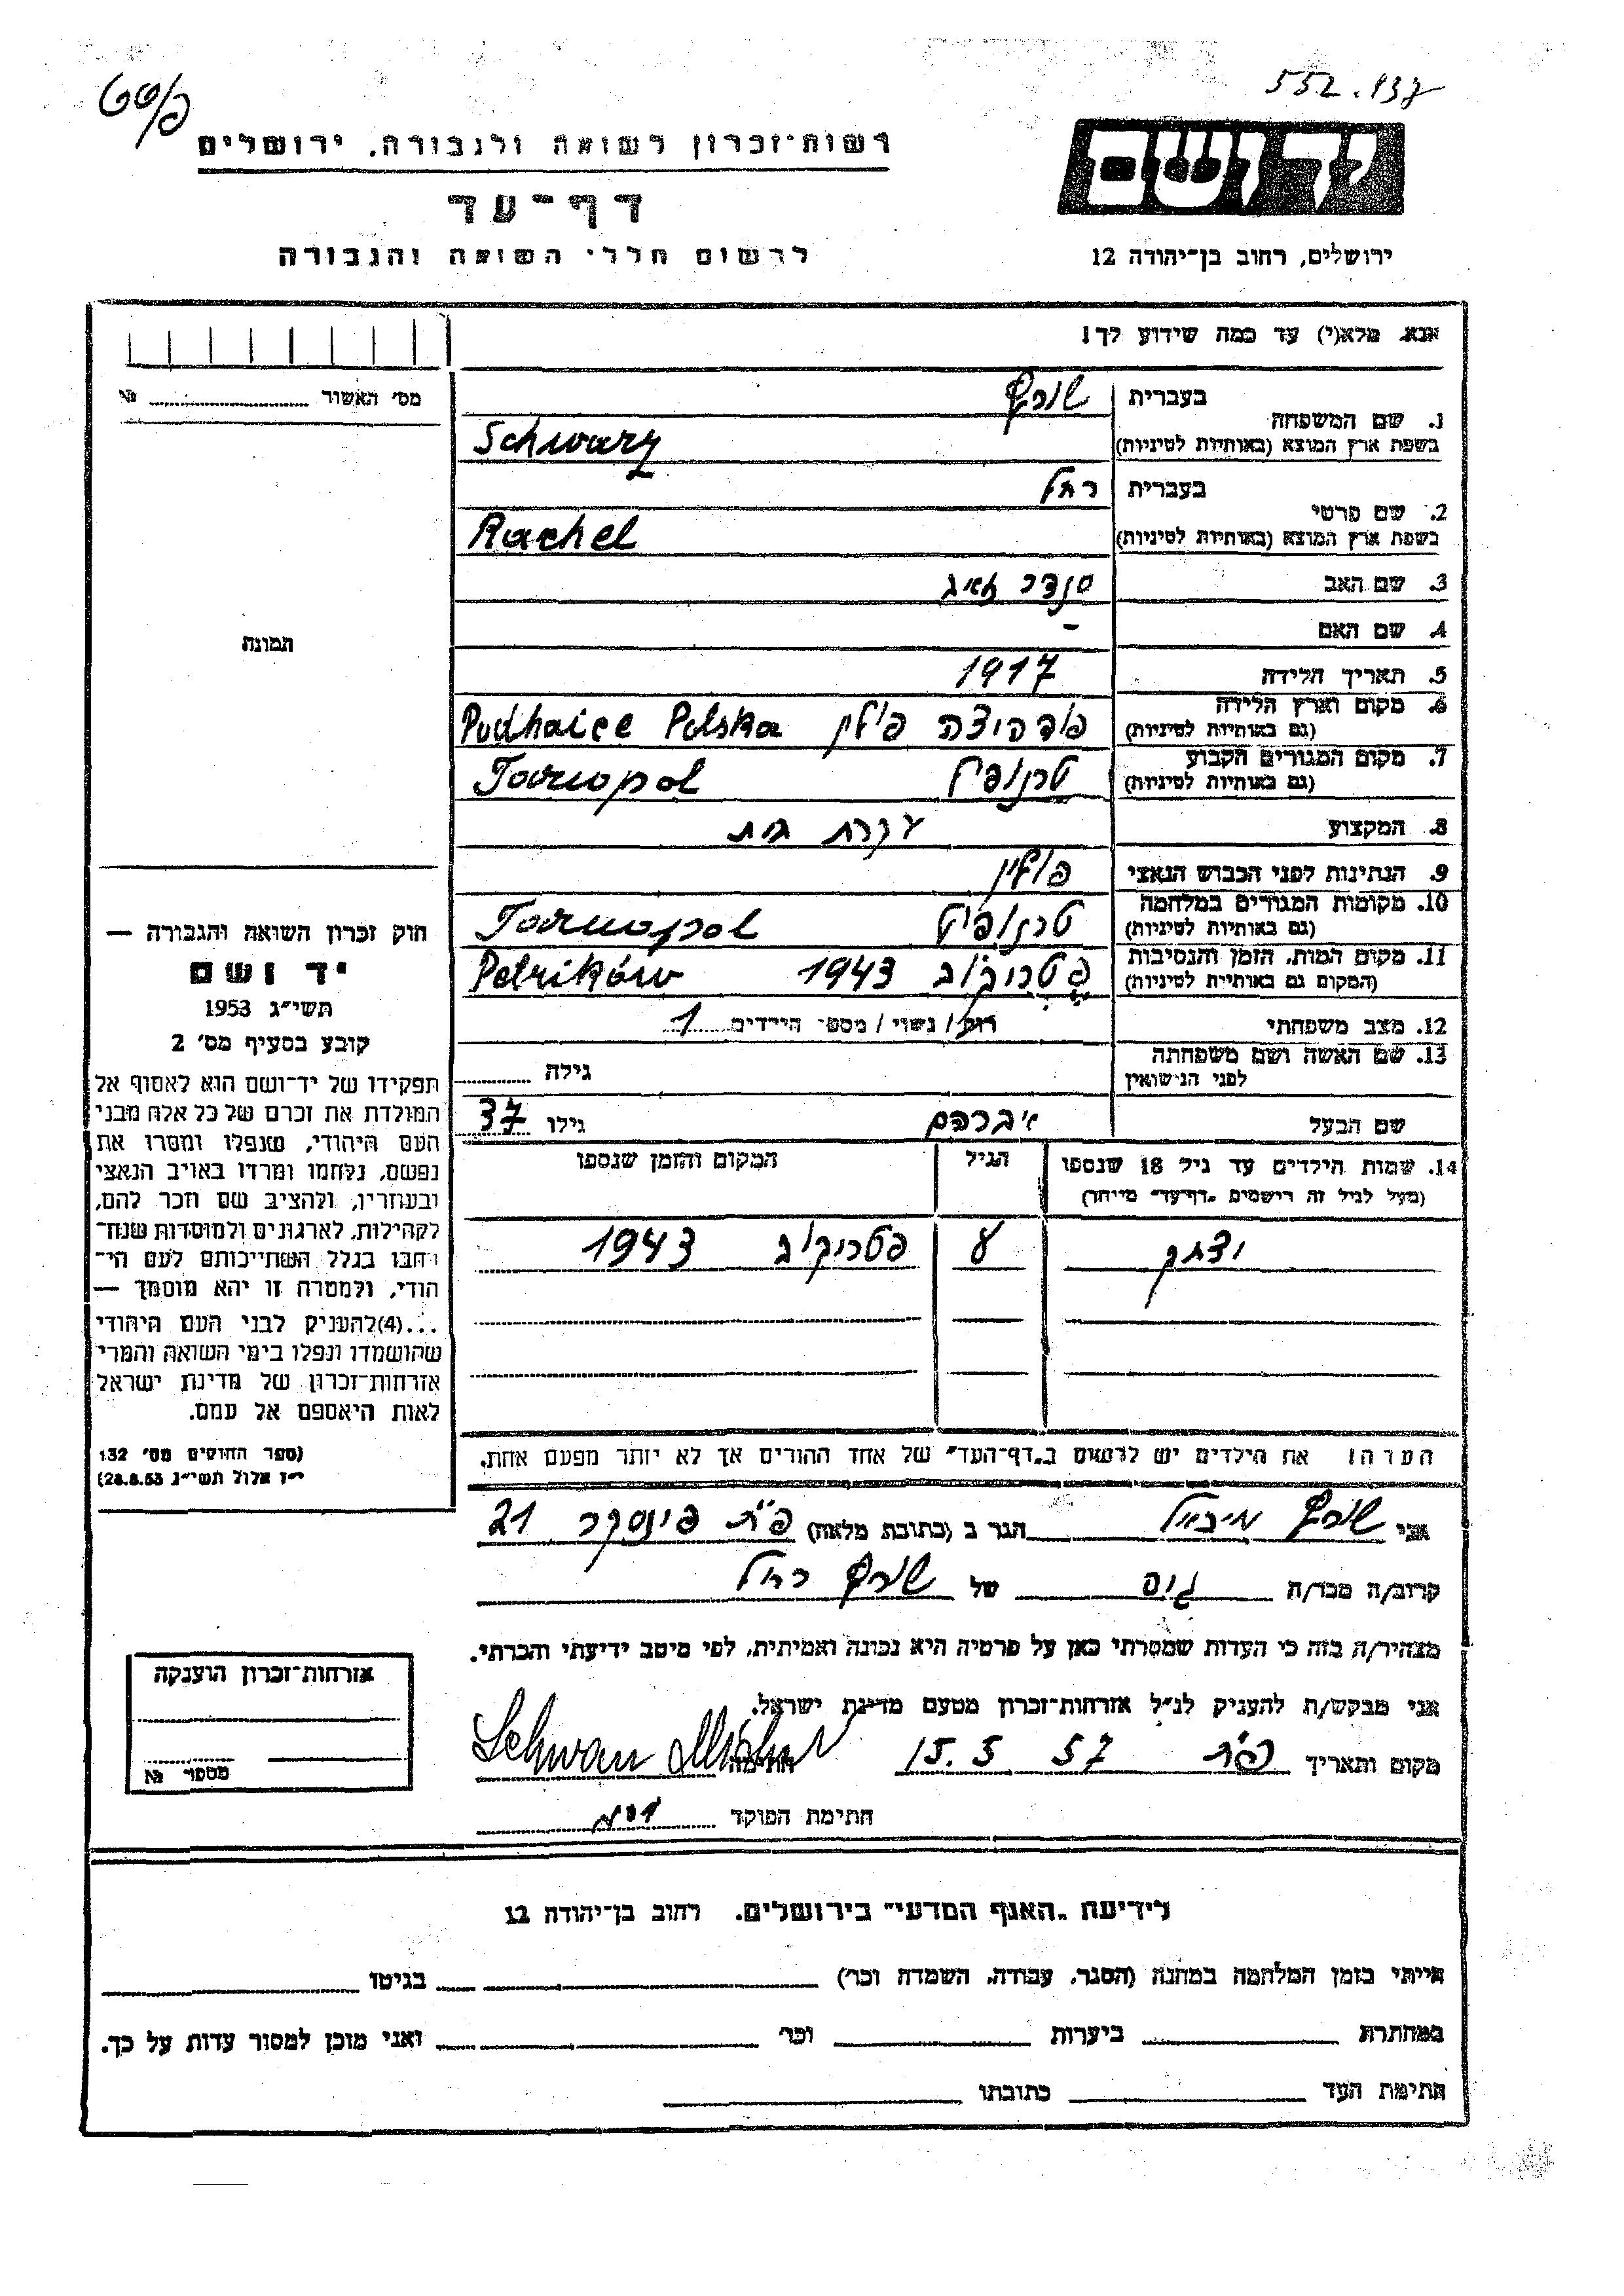 552.137
רשות-זכרון לשואה ולגבורה, ירושלים
דף-עד
לרשום חללי השואה והגבורה
יד ושם
ירושלים, רחוב בן-יהודה 12
אנא, מלא(י) עד כמה שידוע לך!
מס' האשור №
1. שם המשפחה
בעברית שורץ
בשפת ארץ המוצא (באותיות לטיניות) Schwarz
2. שם פרטי
בעברית רחל
בשפת ארץ המוצא (באותיות לטיניות) Rachel
3. שם האב סנדר זאיג
4. שם האם -
תמונה
5. תאריך הלידה 1917
6. מקום וארץ הלידה
(גם באותיות לטיניות) פודהיצה פולין Podhaice Polska
7. מקום המגורים הקבוע
(גם באותיות לטיניות) טרנופול Tarnopol
8. המקצוע עקרת בית
9. הנתינות לפני הכבוש הנאצי פולין
10. מקומות המגורים במלחמה
(גם באותיות לטיניות) טרנופול Tarnopol
11. מקום המות, הזמן והנסיבות
(המקום גם באותיות לטיניות) פטריקוב 1943 Petrików
12. מצב משפחתי רוק / נשוי / מספר הילדים 1
13. שם האשה ושם משפחתה
לפני הנישואין גילה
שם הבעל אברהם גילו 37
14. שמות הילדים עד גיל 18 שנספו הגיל המקום והזמן שנספו
(מעל לגיל זה רישמים "דף-עד" מיוחד)
יצחק פטריקוב 1943
הערה! את הילדים יש לרשום ב"דף-העד" של אחד ההורים אך לא יותר מפעם אחת.
חוק זכרון השואה והגבורה —
יד ושם
תשי"ג 1953
קובע בסעיף מס' 2
תפקידו של יד-ושם הוא לאסוף אל
המולדת את זכרם של כל אלה מבני
העם היהודי, שנפלו ומסרו את
נפשם, נלחמו ומרדו באויב הנאצי
ובעוזריו, ולהציב שם וזכר להם,
לקהילות, לארגונים ולמוסדות שנח-
רבו בגלל השתייכותם לעם הי-
הודי, ולמטרה זו יהא מוסמך —
...(4)להעניק לבני העם היהודי
שהושמדו ונפלו בימי השואה והמרי
אזרחות-זכרון של מדינת ישראל
לאות היאספם אל עמם.
(ספר החוקים מס' 132
י"ז אלול תשי"ג 28.8.53)
אני שורץ מיכאל הגר ב (כתובת מלאה) פ"ת פינסקר 21
קרוב/ה מכר/ה גיס של שורץ רחל
מצהיר/ה בזה כי העדות שמסרתי כאן על פרטיה היא נכונה ואמיתית, לפי מיטב ידיעתי והכרתי.
אני מבקש/ת להעניק לנ"ל אזרחות-זכרון מטעם מדינת ישראל.
מקום ותאריך פ"ת 15.5 57 חתימה
חתימת הפוקד
אזרחות-זכרון הוענקה
מספר №
לידיעת "האגף המדעי" בירושלים. רחוב בן-יהודה 12
הייתי בזמן המלחמה במחנה (הסגר, עבודה, השמדה וכו') בגיטו
במחתרת ביערות וכו' ואני מוכן למסור עדות על כך.
חתימת העד כתובתו